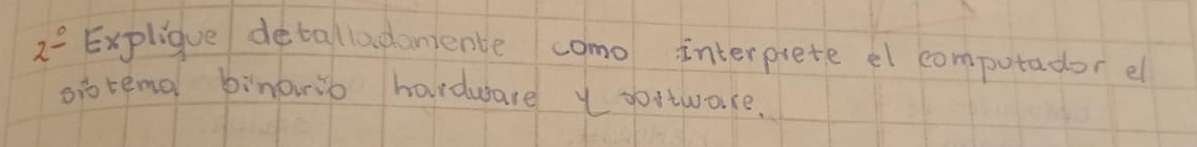 2º Explique detalladamente como interprete el computador el
sistema binario hardware y software.